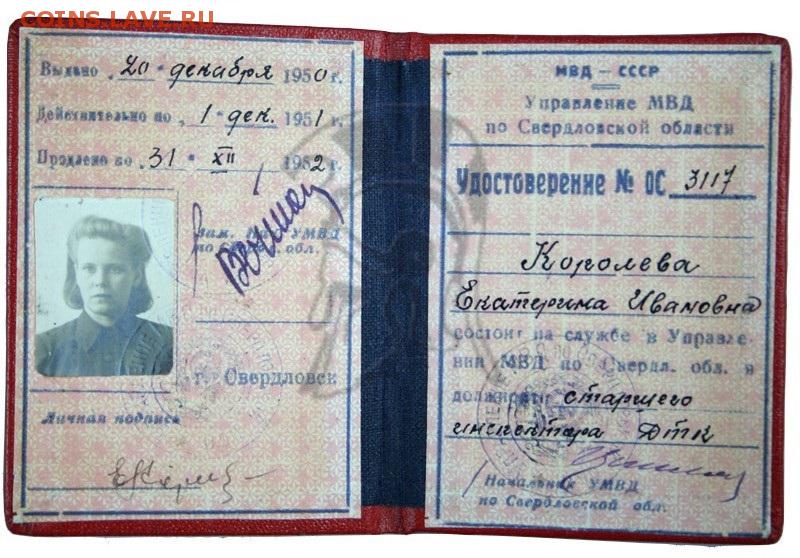 COINS.LAVE.RU
Выдано „ 20 " декабря 1950 г.
Действительно по „ 1 " дек. 1951 г.
Продлено по „ 31 " XII 1952 г.
Зам. Нач. УМВД
по Свердл. обл.
г. Свердловск
Личная подпись
МВД — СССР
Управление МВД
по Свердловской области
Удостоверение № ОС 3117
Королева
Екатерина Ивановна
состоит на службе в Управле-
нии МВД по Свердл. обл. в
должности старшего
инспектора ДТК
Начальник УМВД
по Свердловской обл.